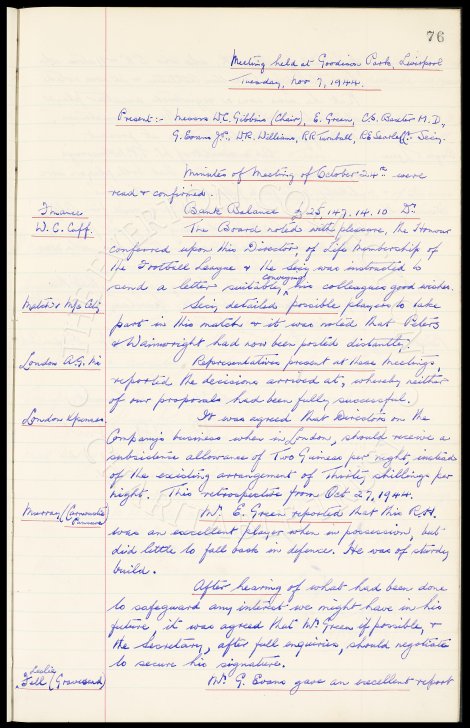 76
Meeting held at Goodison Park, Liverpool
Tuesday, Nov 7, 1944.
Present:- Messrs W.C. Gibbins (Chair), E. Green, C.S. Baxter M.D.,
G. Evans J.P., W.R. Williams, R.R. Turnbull, R.E. Searle, Secy.
Minutes of Meeting of October 24th were
read & confirmed.
Finance
Bank Balance £25,147.14.10 Dr.
W.C. Cuff.
The Board noted with pleasure, the Honour
conferred upon this Director, of Life Membership of
the Football League & the Secy was instructed to
send a letter suitably conveying his colleagues good wishes.
Match v M/c City
Secy detailed possible players to take
part in this match & it was noted that Peters
& Wainwright had now been posted distantly.
London A.G. Mt
Representatives present at these Meetings,
reported the decisions arrived at, whereby neither
of our proposals had been fully successful.
London Expenses
It was agreed that Directors on the
Company's business when in London, should receive a
subsistence allowance of Two Guineas per night instead
of the existing arrangement of Thirty shillings per
night. This retrospective from Oct 27, 1944.
Murray,
Mr. E. Green reported that this R.H.
was an excellent player when in possession, but
did little to fall back in defence. He was of sturdy
build.
After hearing of what had been done
to safeguard any interest we might have in his
future, it was agreed that Mr Green if possible, &
the Secretary, after full enquiries, should negotiate
to secure his signature.
Leslie Fell (Gravesend)
Mr. G. Evans gave an excellent report